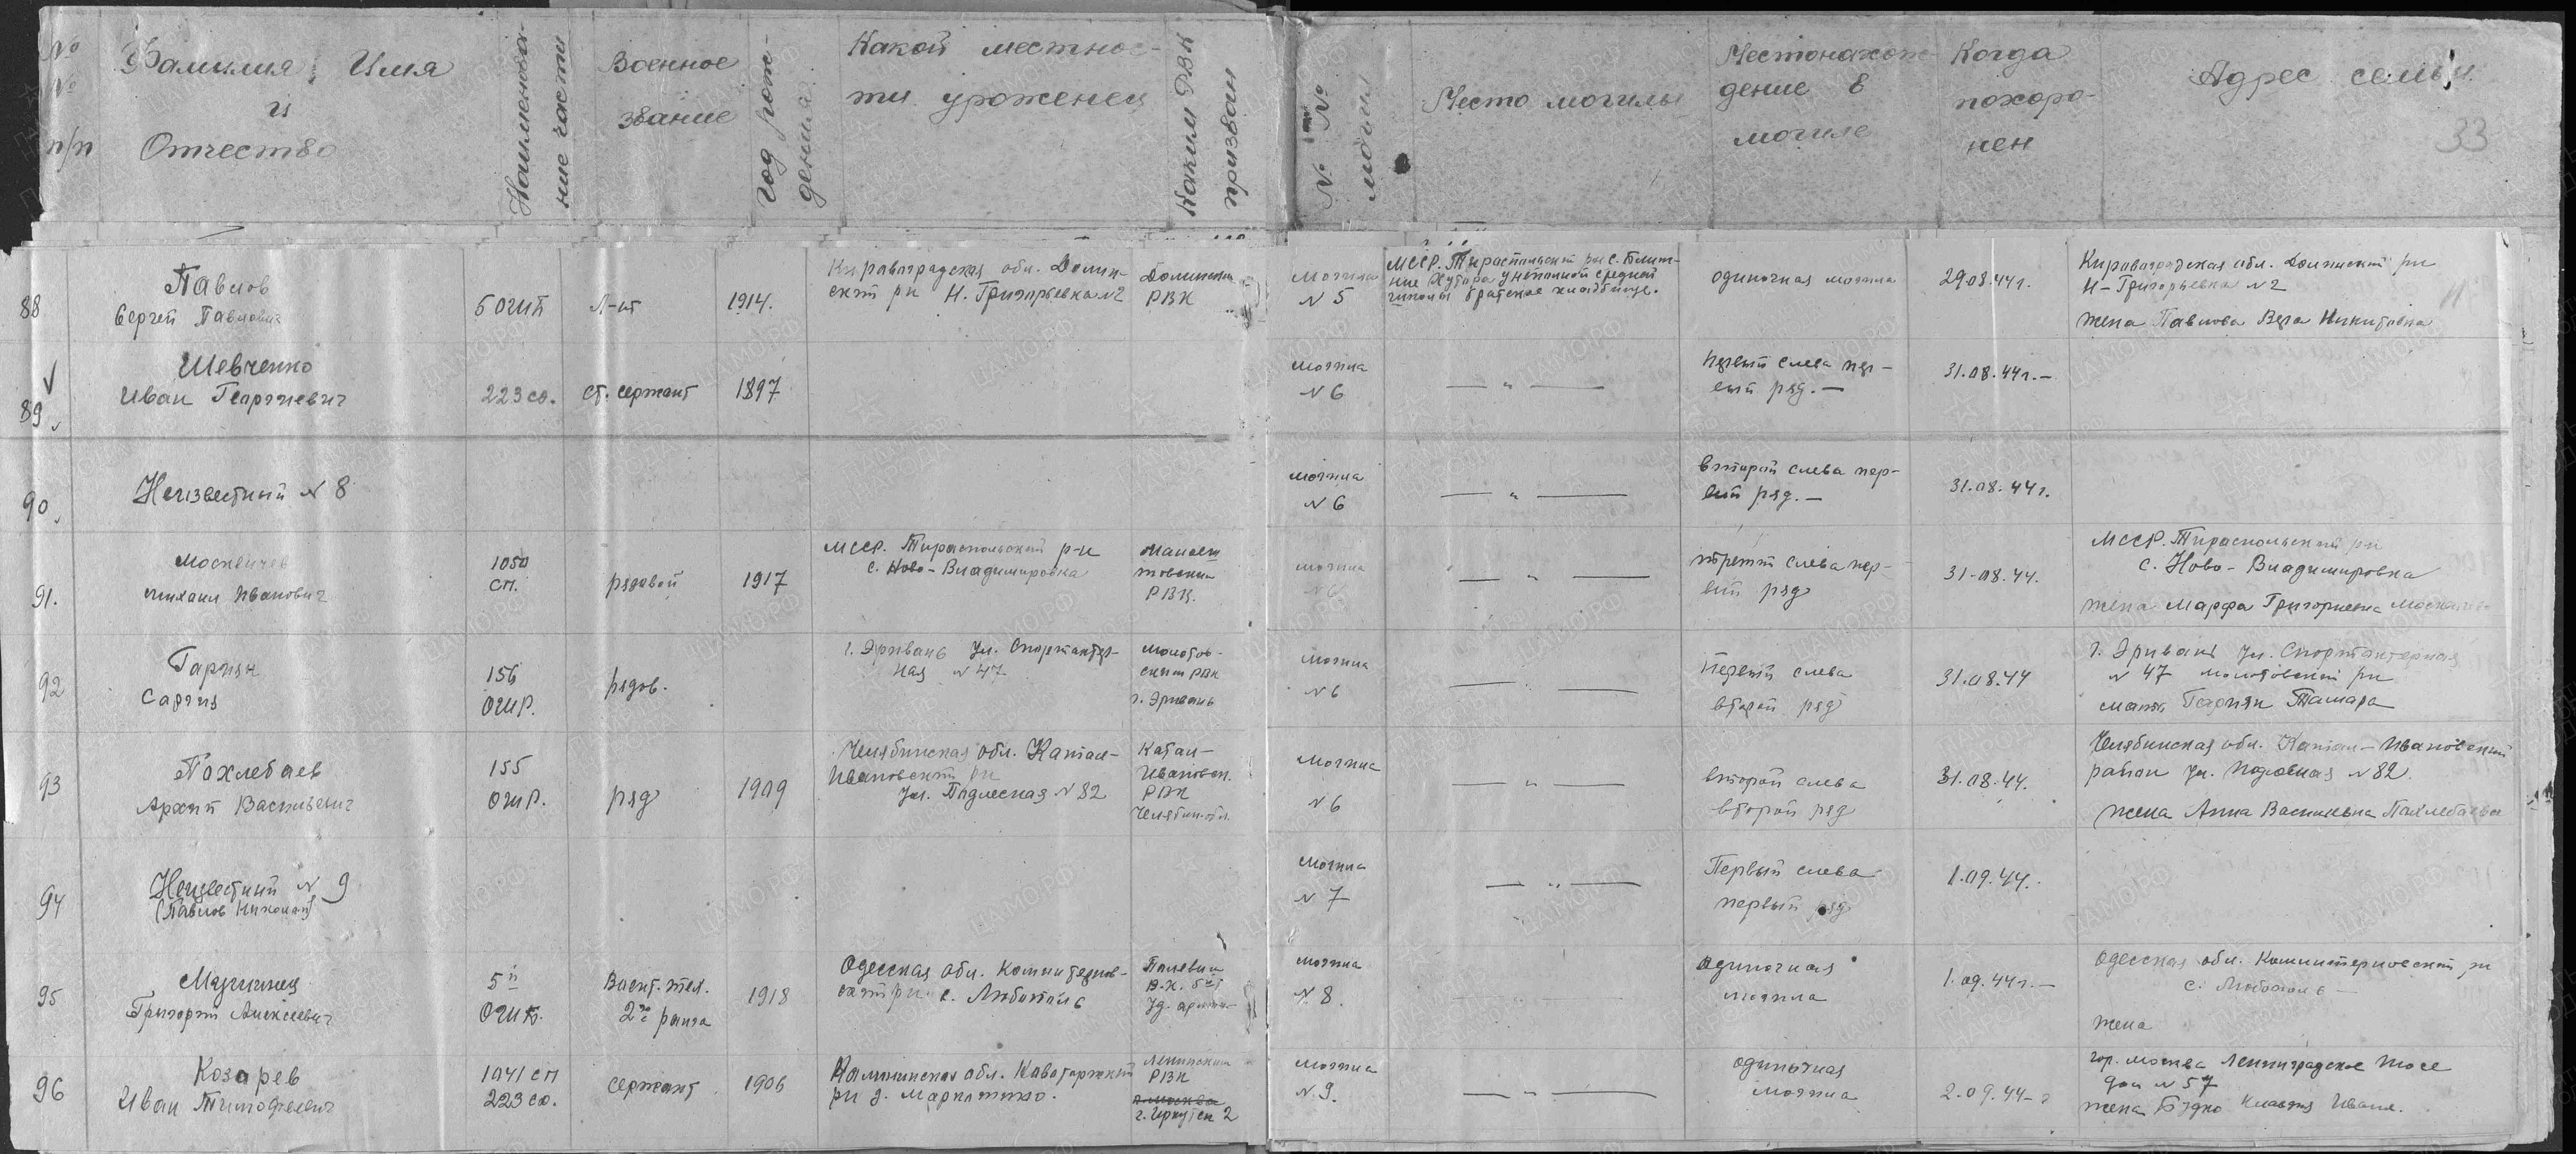 № № п/п
Фамилия Имя и Отчество
Наименова-ние части
Военное звание
Год рож-дения
Какой местнос-ти уроженец
Каким РВК призван
№ № могилы
Место могилы
Местонахож-дение в могиле
Когда похоро-нен
Адрес семьи
33
88
Павлов
Сергей Павлович
5 ОШБ
Л-нт
1914.
Кировоградская обл. Долин-
ский рн Н. Григорьевка №2
Долинским
РВК
Могила
№ 5
МССР. Тираспольский рн с.
Хутора у неполной средней
школы братское кладбище.
одиночная могила
29.08.44г.
Кировоградская обл. Долинский рн
Н-Григорьевка №2
жена Павлова Вера Никитовна
89
Шевченко
Иван Георгиевич
223 сд.
ст. сержант
1897
могила
№ 6
— " —
первый слева пер-
вый ряд. —
31.08.44г. —
90
Неизвестный № 8
могила
№ 6
— " —
второй слева пер-
вый ряд. —
31.08.44г.
91.
Москвичев
Михаил Иванович
1050
СП.
рядовой
1917
МССР. Тираспольский р-н
с. Ново-Владимировка
РВК.
могила
№ 6
— " —
третий слева пер-
вый ряд
31-08.44.
МССР. Тираспольский рн
с. Ново-Владимировка
жена Марфа Григорьевна
92
Гарнян
Саргис
156
ОШР.
рядов.
г. Эривань ул.
ная №47
Молотов-
ским РВК
г. Эривань
Могила
№ 6
— " —
Первый слева
второй ряд
31.08.44
г. Эривань ул.
№ 47 Молотовский рн
мать Гарнян Тамара
93
Пахлебаев
Архип Васильевич
155
ОШР.
ряд
1909
Челябинская обл. Катав-
Ивановский рн
ул. Подлесная №82
Катав-
Ивановск.
РВК
Челябин.обл.
Могила
№ 6
— " —
второй слева
второй ряд
31.08.44.
Челябинская обл. Катав-Ивановский
район ул. №82.
жена Анна Васильевна Пахлебаева
94
Неизвестный № 9
(Павлов Николай)
Могила
№ 7
— " —
Первый слева
первый ряд
1.09.44.
95
Григорий Алексеевич
5й
ОШБ.
Воент. тех.
2го ранга
1918
Одесская обл. Коминтернов-
ский рн с. Любополь
Полевым
В.К. 5й
Уд. армии
могила
№ 8.
одиночная
могила
1.09.44г. —
Одесская обл. Коминтерновский рн
с. Любополь —
жена
96
Козарев
Иван Тимофеевич
1041 сп
223 сд.
сержант
1906
Калининская обл.
рн д.
Ленинским
РВК
г. Москва
г. Иркутск 2
могила
№ 9.
— " —
одиночная
могила
2.09.44-г
гор. Москва Ленинградское шосе
дом № 57
жена Клавдия Иван.